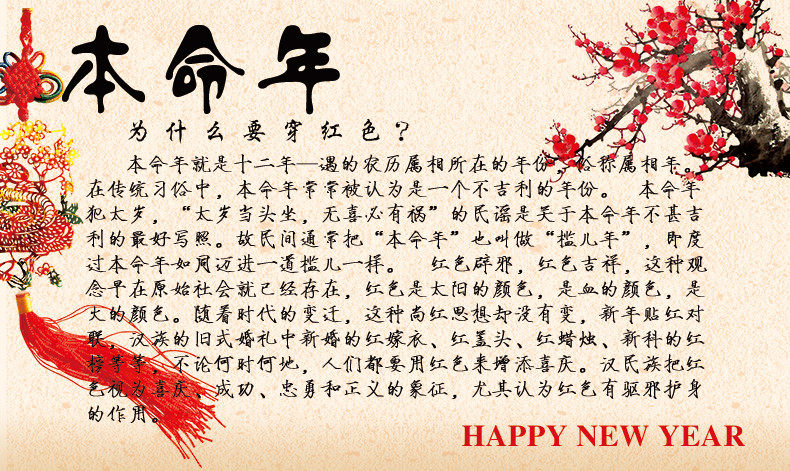 本命年
为什么要穿红色？
本命年就是十二年一遇的农历属相所在的年份，俗称属相年。
在传统习俗中，本命年常常被认为是一个不吉利的年份。 本命年
犯太岁，“太岁当头坐，无喜必有祸”的民谣是关于本命年不甚吉
利的最好写照。故民间通常把“本命年”也叫做“槛儿年”，即度
过本命年如同迈进一道槛儿一样。 红色辟邪，红色吉祥，这种观
念早在原始社会就已经存在，红色是太阳的颜色，是血的颜色，是
火的颜色。随着时代的变迁，这种尚红思想却没有变，新年贴红对
联，汉族的旧式婚礼中新婚的红嫁衣、红盖头、红蜡烛、新科的红
榜等等，不论何时何地，人们都要用红色来增添喜庆。汉民族把红
色视为喜庆、成功、忠勇和正义的象征，尤其认为红色有驱邪护身
的作用。
HAPPY NEW YEAR